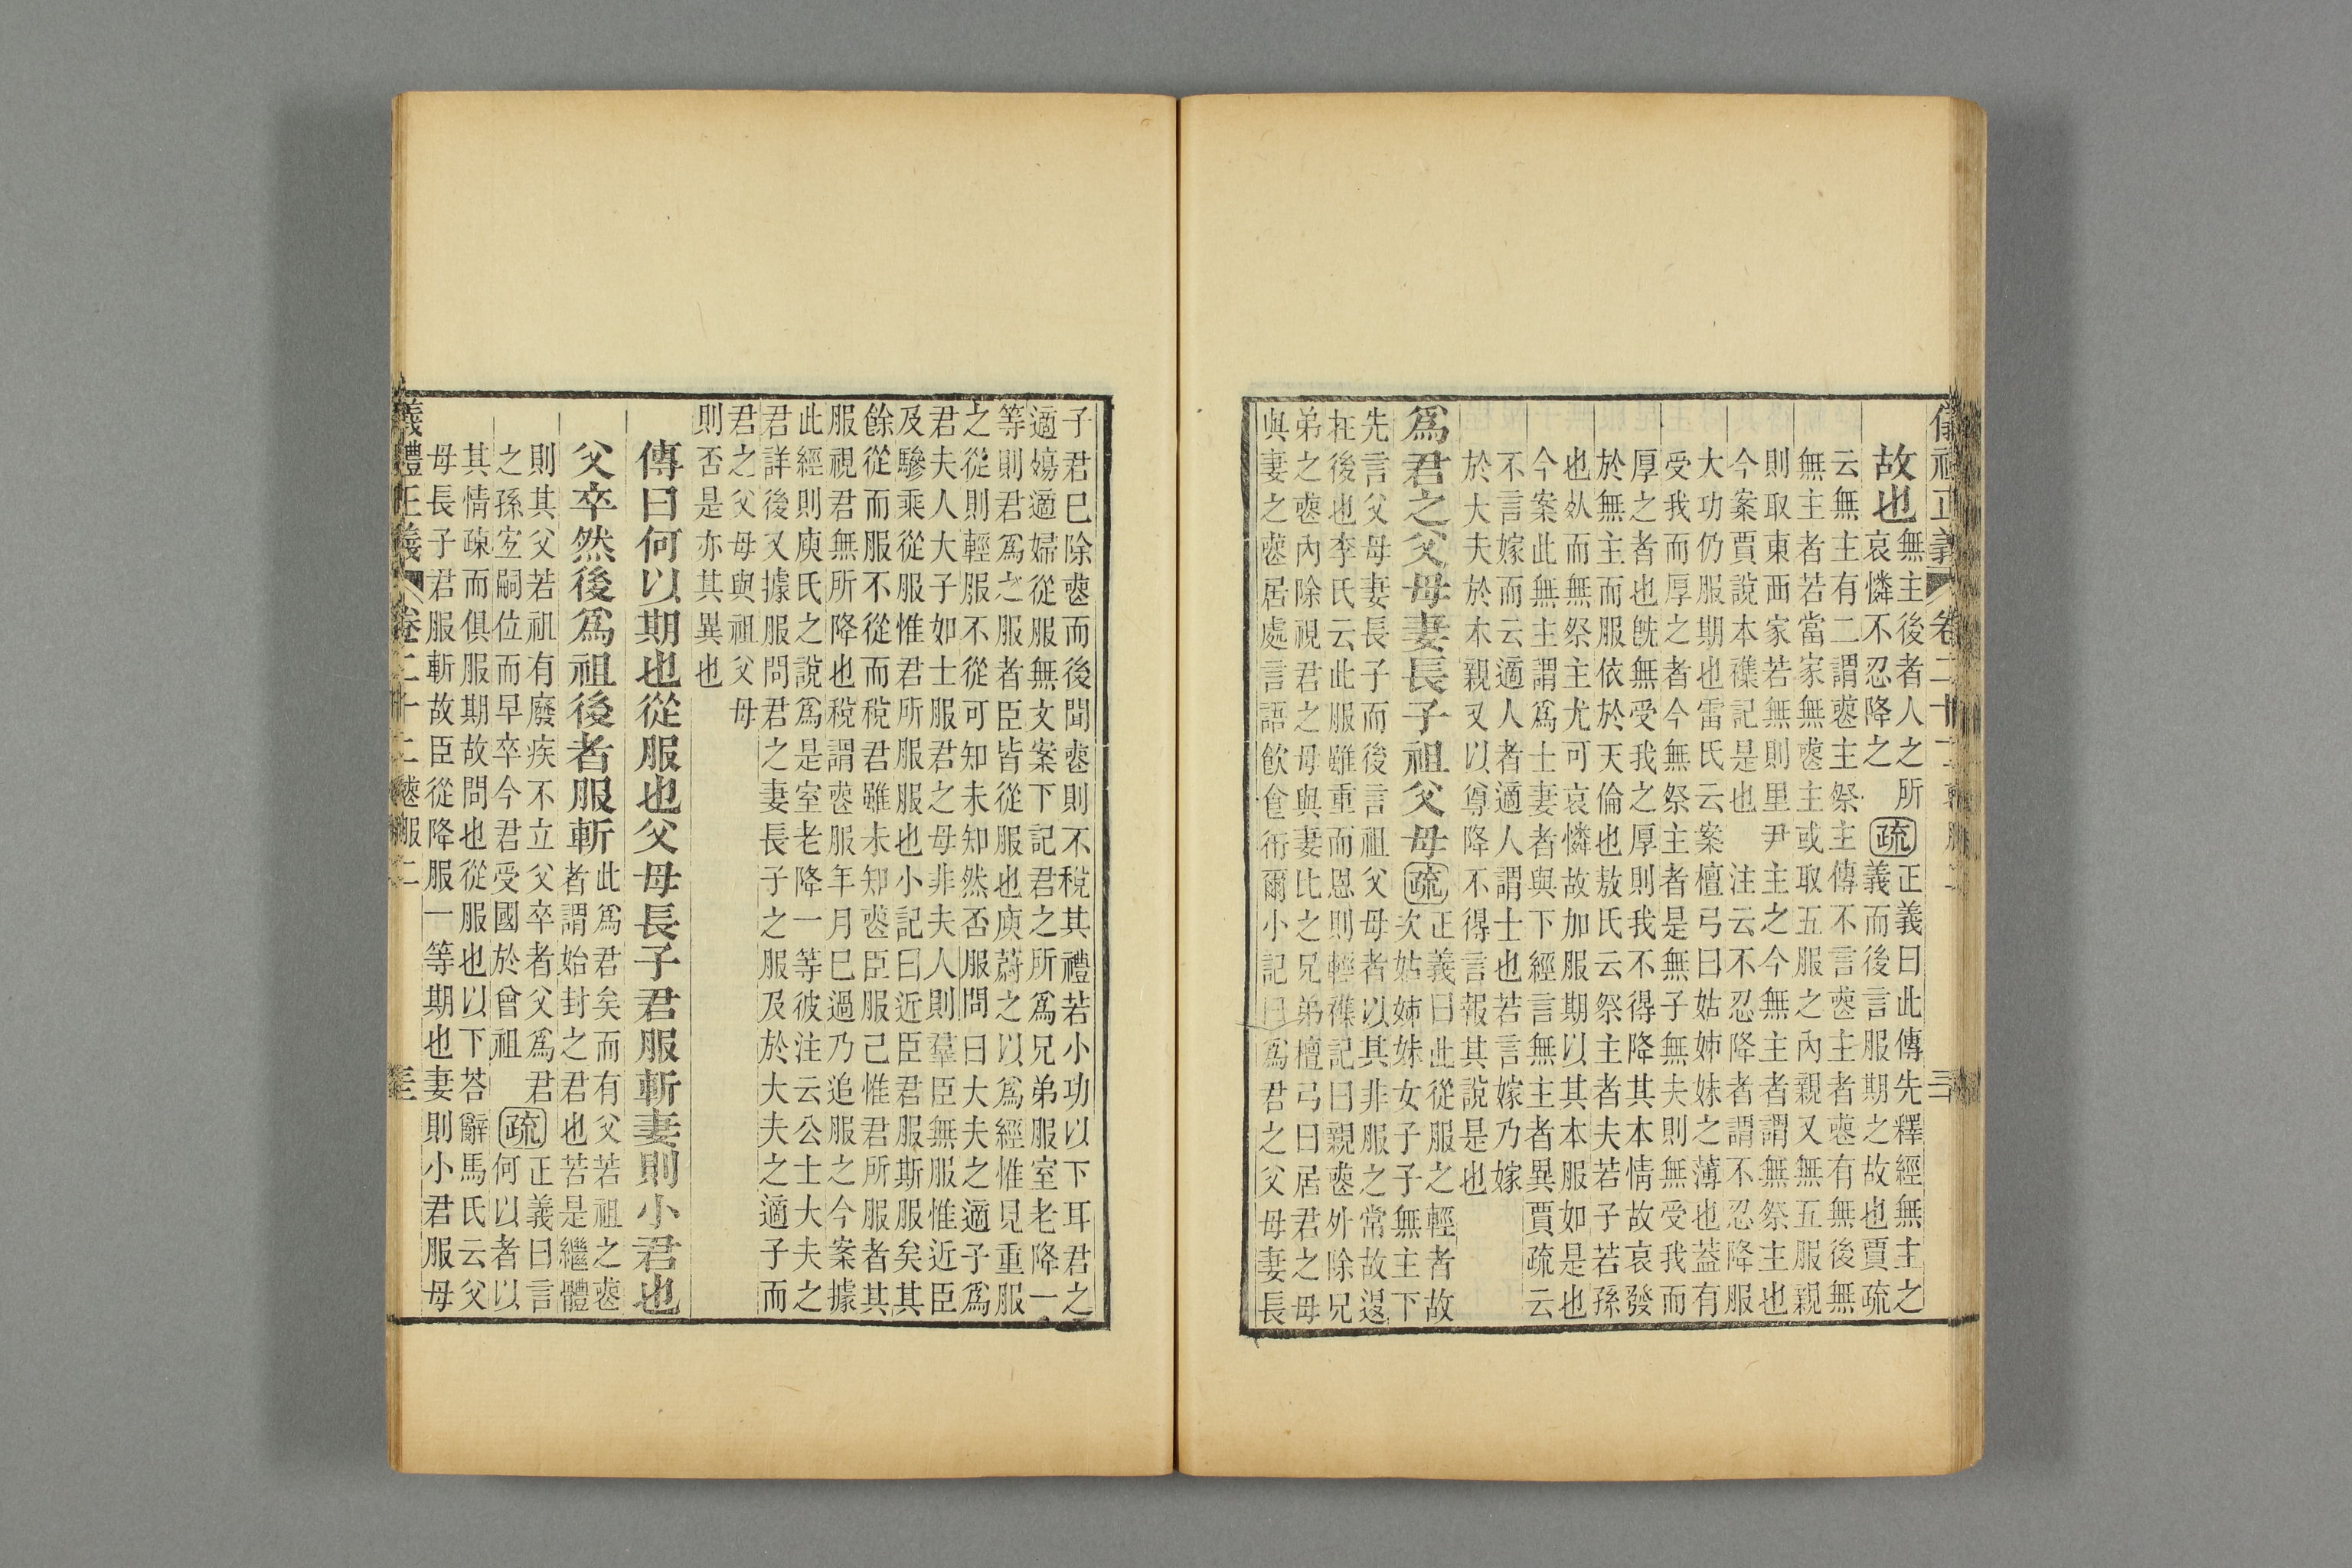 儀禮正義 卷二十二 喪服二 三
故也
無主後者人之所
哀憐不忍降之
疏
正義曰此傳先釋經無主之
義而後言服期之故也賈疏
云無主有二謂䘮主祭主傳不言䘮主者䘮有無後無
無主者若當家無䘮主或取五服之內親又無五服親
則取東西家若無則里尹主之今無主者謂無祭主也
今案賈說本襍記是也 注云不忍降者謂不忍降服
大功仍服期也雷氏云案檀弓曰姑姊妹之薄也葢有
受我而厚之者今無祭主者是無子無夫則無受我而
厚之者也旣無受我之厚則我不得降其本情故哀發
於無主而服依於天倫也敖氏云祭主者夫若子若孫
也㒳而無祭主尤可哀憐故加服期以其本服如是也
今案此無主謂爲士妻者與下經言無主者異賈疏云
不言嫁而云適人者適人謂士也若言嫁乃嫁
於大夫於本親又以尊降不得言報其說是也
爲君之父母妻長子祖父母
疏
正義曰此從服之輕者故
次姑姊妹女子子無主下
先言父母妻長子而後言祖父母者以其非服之常故退
在後也李氏云此服雖重而恩則輕襍記曰親䘮外除兄
弟之䘮內除視君之母與妻比之兄弟檀弓曰居君之母
與妻之䘮居處言語飲食衎爾小記曰爲君之父母妻長
子君已除䘮而後聞䘮則不稅其禮若小功以下耳君之
適婦適婦從服無文案下記君之所爲兄弟服室老降一
等則君爲之服者臣皆從服也庾蔚之以爲經惟見重服
之從則輕服不從可知未知然否服問曰大夫之適子爲
君夫人大子如士服君之母非夫人則羣臣無服惟近臣
及驂乘從服惟君所服服也小記曰近臣君服斯服矣其
餘從而服不從而稅君雖未知䘮臣服己惟君所服者其
服視君無所降也稅謂䘮服年月已過乃追服之今案據
此經則庾氏之說爲是室老降一等彼注云公士大夫之
君詳後又據服問君之妻長子之服及於大夫之適子而
君之父母與祖父母
則否是亦其異也
傳曰何以期也從服也父母長子君服斬妻則小君也
父卒然後爲祖後者服斬
此爲君矣而有父若祖之䘮
者謂始封之君也若是繼體
則其父若祖有廢疾不立父卒者父爲君
之孫宜嗣位而早卒今君受國於曾祖
疏
正義曰言
何以者以
其情疎而俱服期故問也從服也以下荅辭馬氏云父
母長子君服斬故臣從降服一等期也妻則小君服母
義禮正義 卷二十二 䘮服二 三